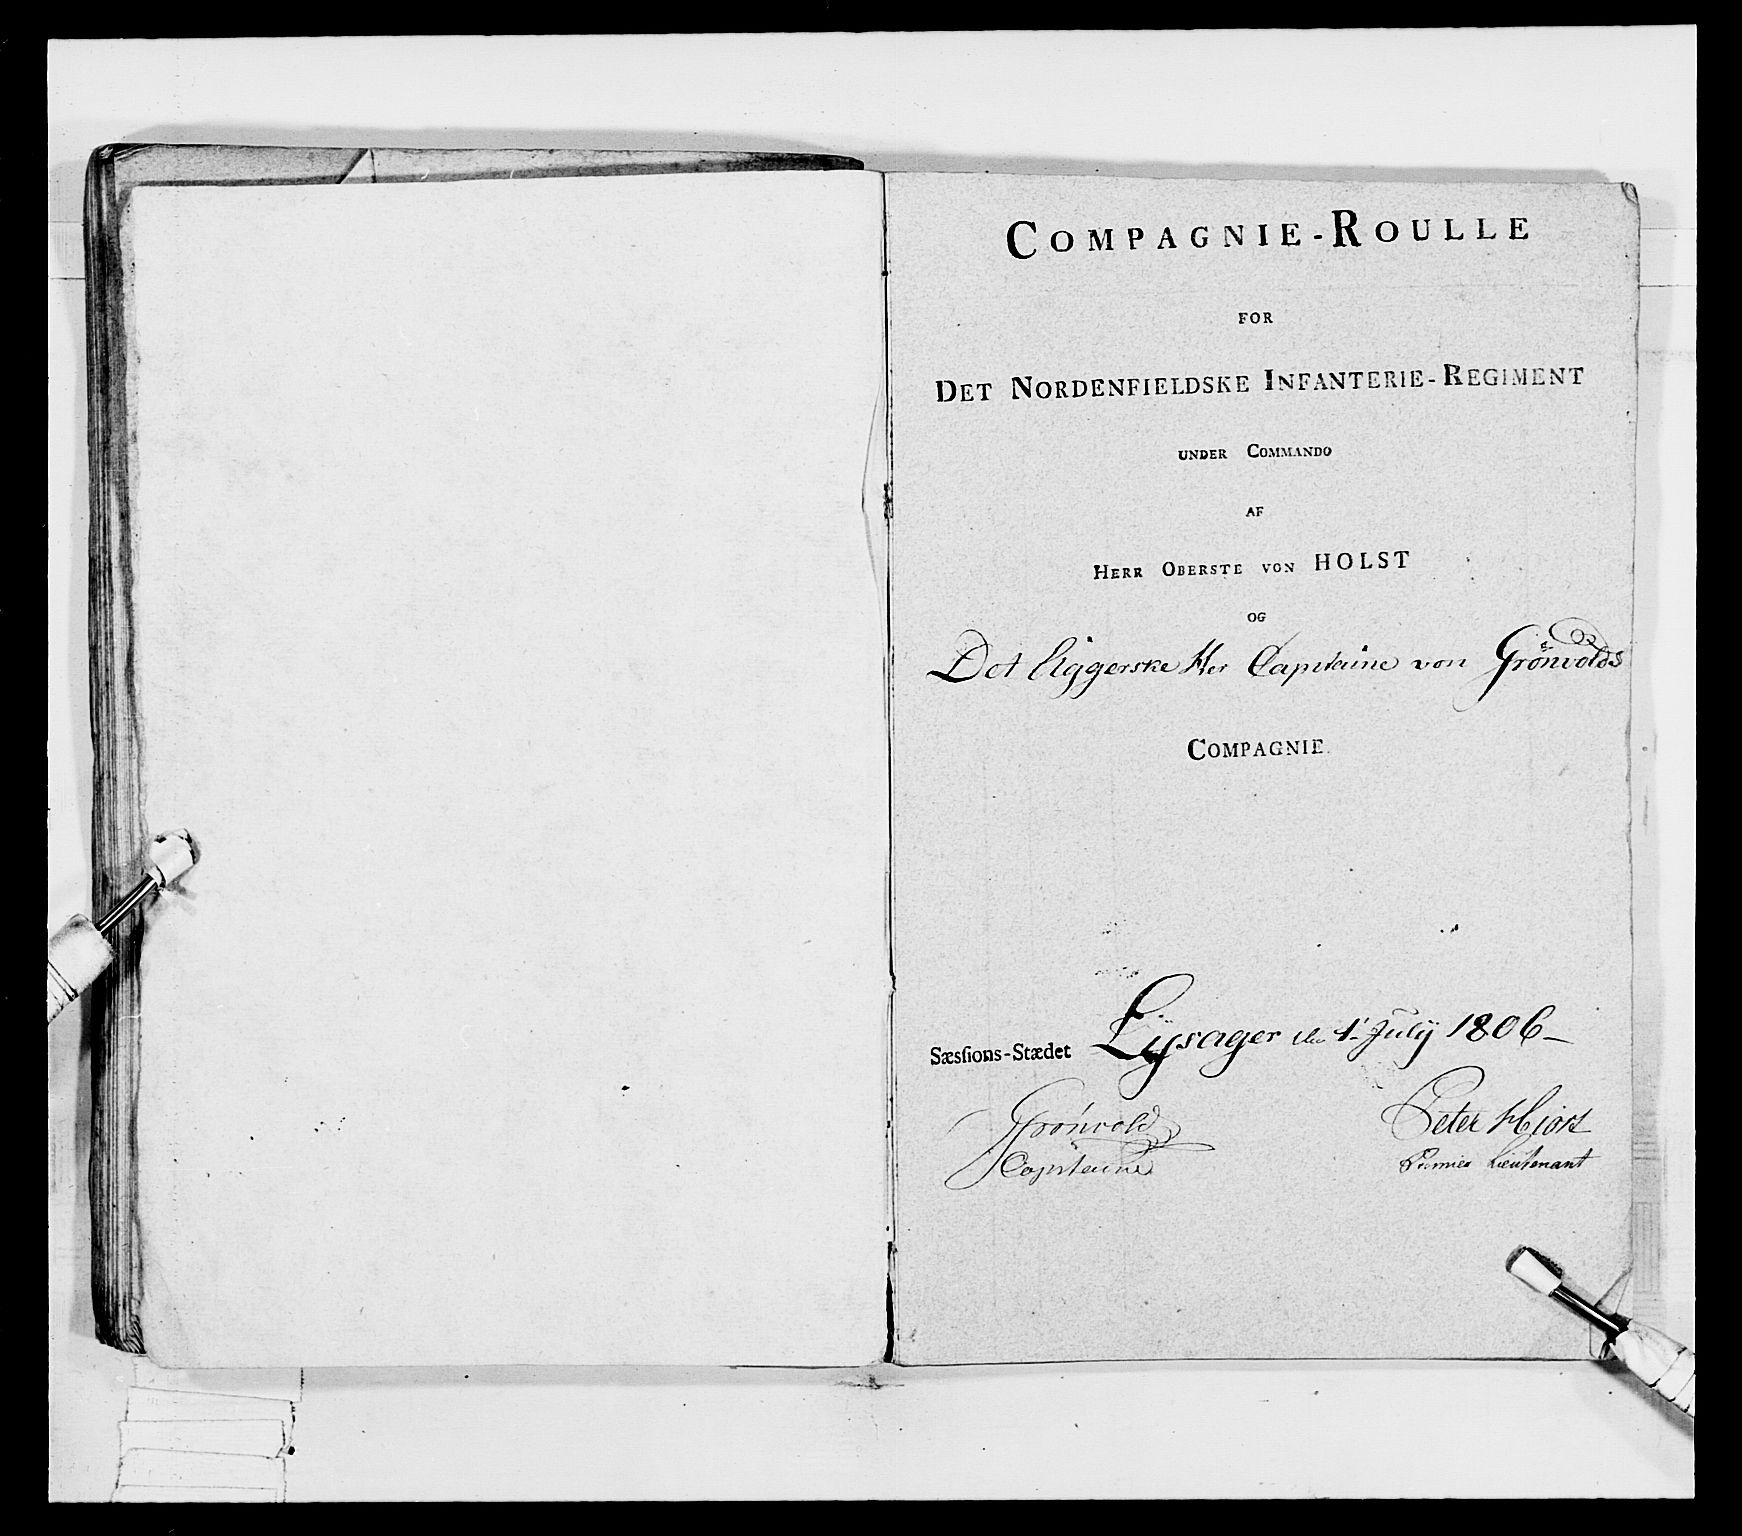 COMPAGNIE-ROULLE
FOR
DET NORDENFIELDSKE INFANTERIE-REGIMENT
UNDER COMMANDO
AF
HERR OBERSTE VON HOLST
OG
Det Aggerske Her Capitaine von Grönvolds
COMPAGNIE.
Sæsſions-Stædet Lysager den 1' July 1806
Grönvold Peter Hiort
Capitaine Premier Lieutenant